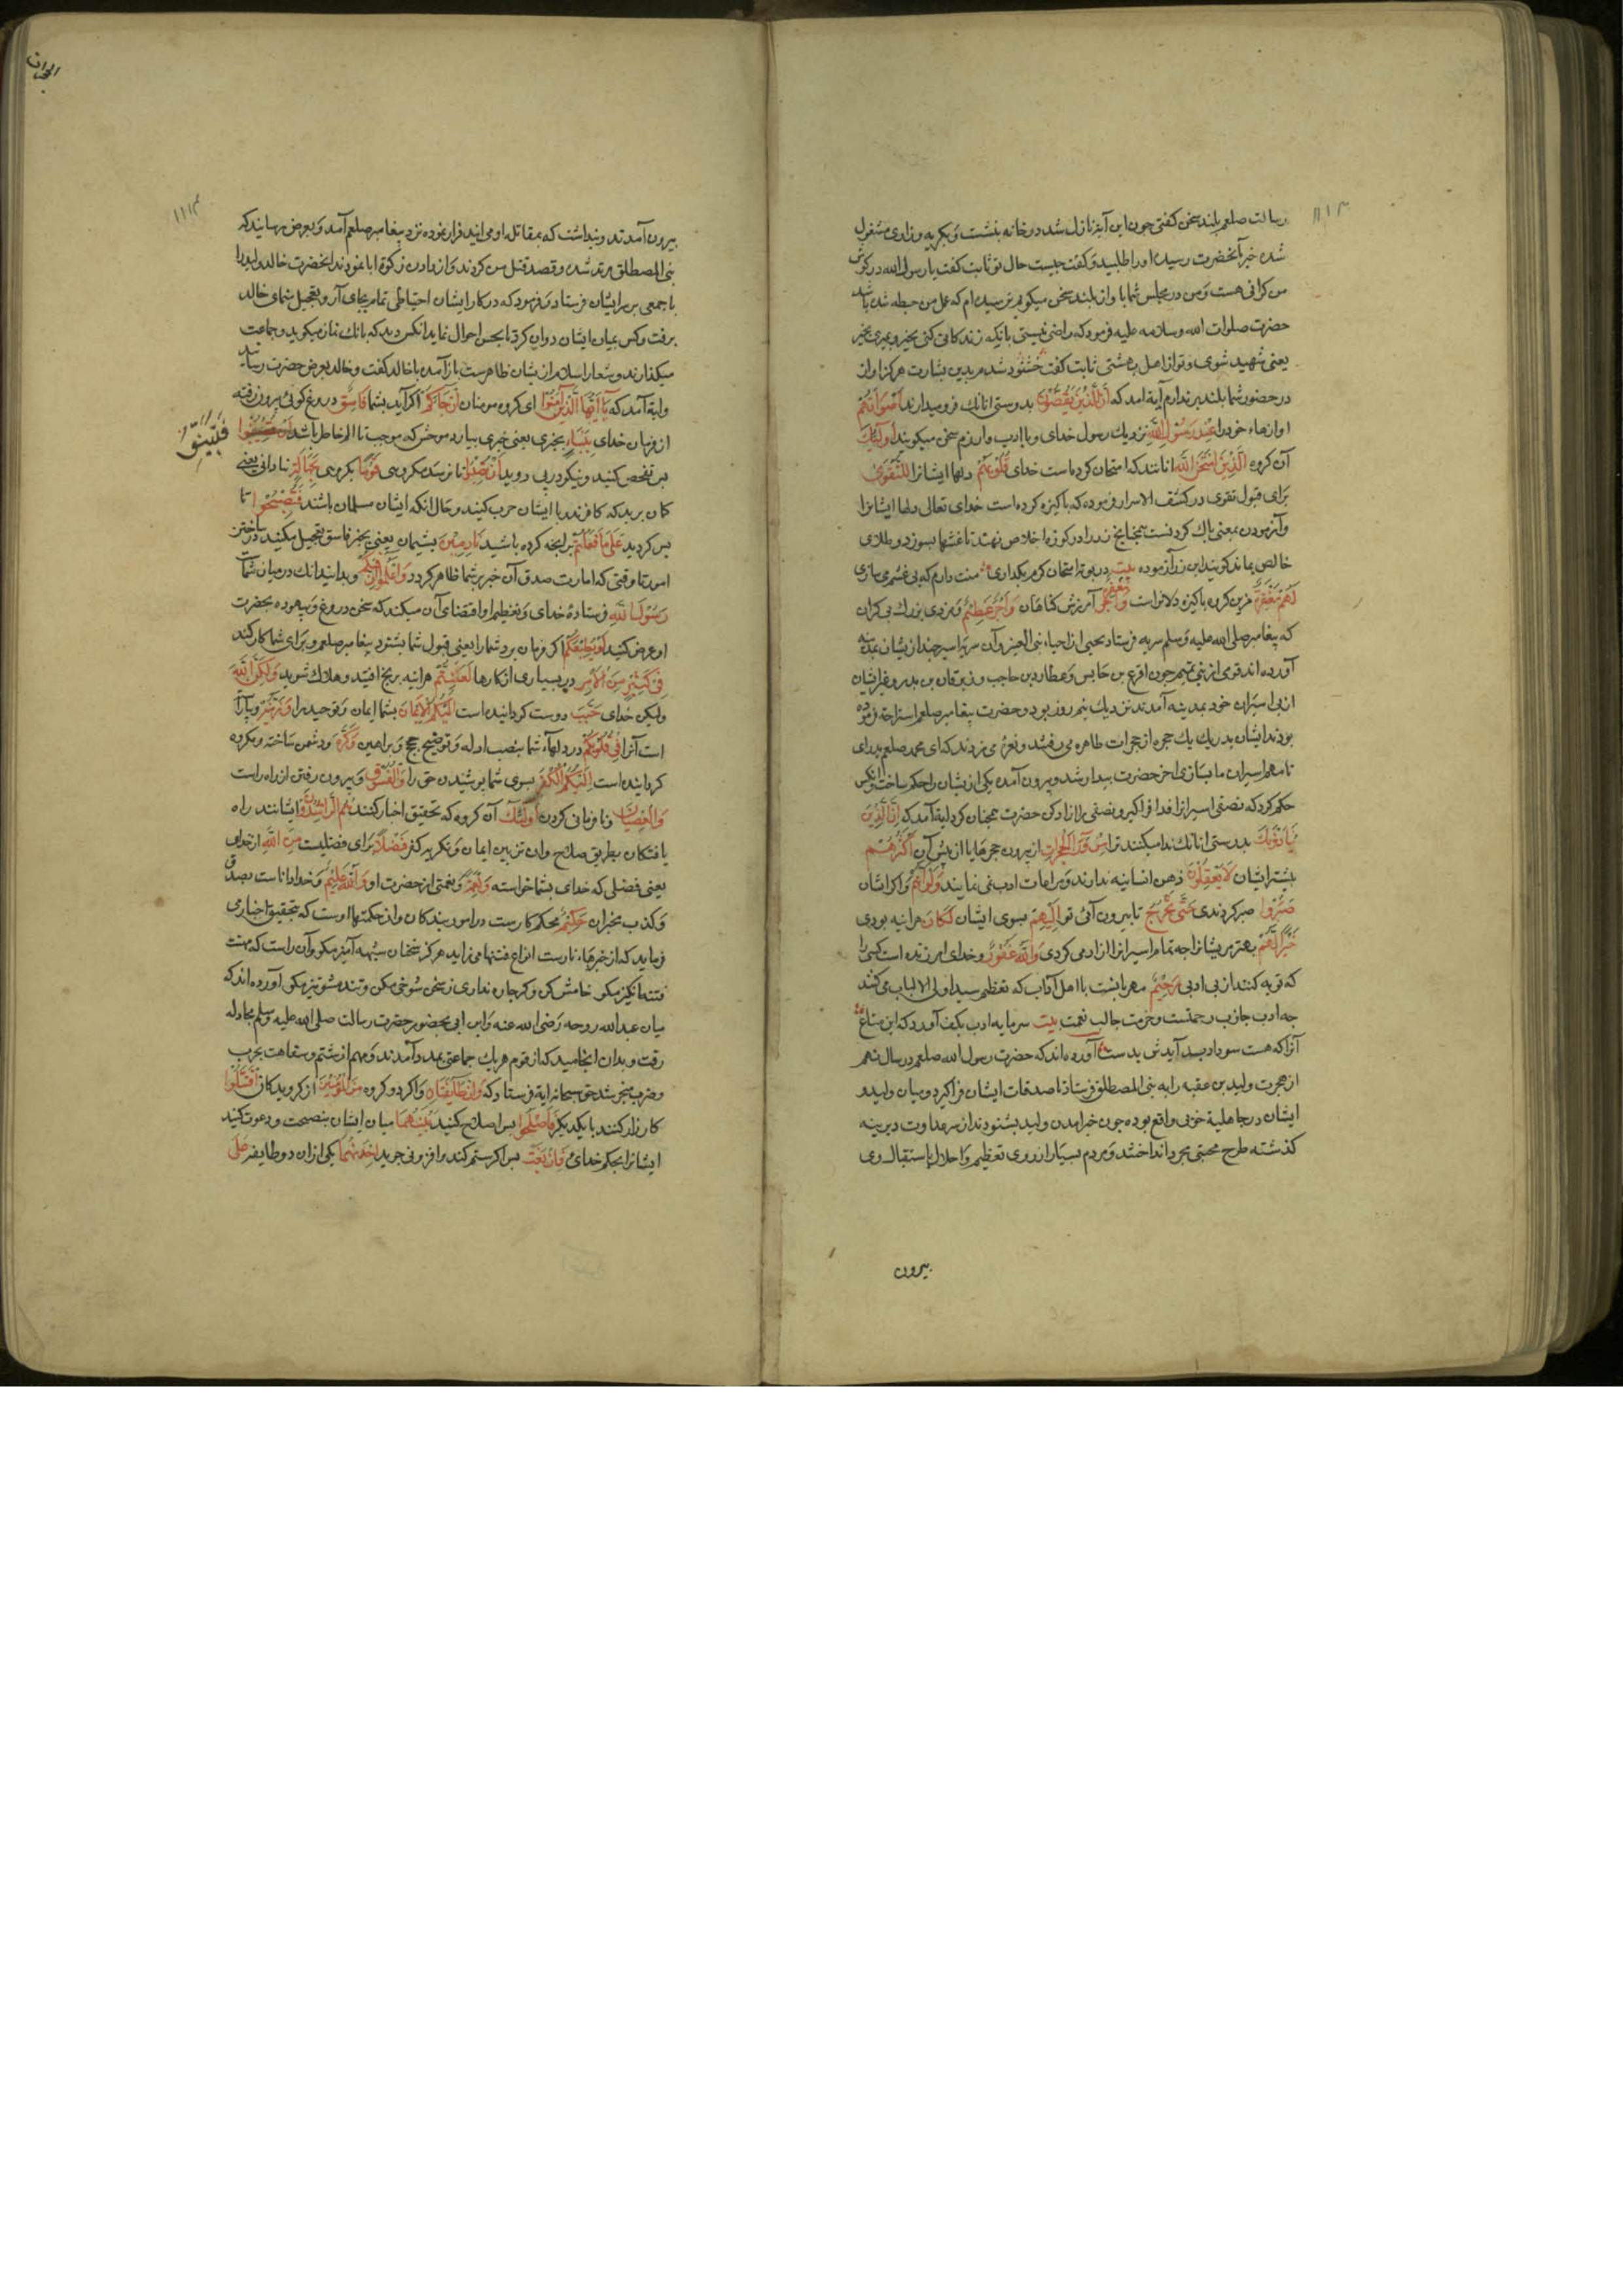 رسالت صلعم بلند سخن كفتى جون اين آية نازل شد در خانه بنشست و بكريه و زارى مشغول
شد خبر بآنحضرت رسيد او را طلبيد و كفت جيست حال تو ثابت كفت يا رسول الله در كوش
من كرانى هست و من در مجلس شما باواز بلند سخن ميكويم ترسيده ام كه عمل من حبطه شده باشد
حضرت صلوات الله وسلامه عليه فرمود كه راضى نيستى بانكه زندكانى كنى بخير و بميرى بخير
يعنى شهيد شوى و تو از اهل بهشتى ثابت كفت خشنود شدم بدين بشارت هركز اواز
در حضور شما بلند بر ندارم آية امد كه اِنَّ الَّذينَ يَغُضُّونَ بدرستى انانك فرو ميدارند اَصْوَاتَهُمْ
اوازهاء خود را عِنْدَ رَسُولِ اللهِ نزديك رسول خداى و با ادب و ازرم سخن ميكويند اُولٰئِكَ
آن كروه الَّذِينَ امْتَحَنَ اللهُ انانند كه امتحان كرده است خداى قُلُوبَهُمْ دلهاء ايشانرا لِلتَّقْوٰى
براى قبول تقوى در كشف الاسرار فرموده كه باكيزه كرده است خداى تعالى دلها ايشانرا
وآزمودن بمعنى باك كردنست همجنانج زر را در كوزه اخلاص نهند تا غشها بسوزد و طلاى
خالص بماند كويند اين زر آزموده بيت در بوته امتحان كرم بكدازى منت دارم كه بى غشم مى سازى
لَهُمْ مَغْفِرَةٌ مرين كروه باكيزه دلانراست آمرزش كناهان وَاَجْرٌ عَظِيمٌ و مزدى بزرك بى كران
كه پيغامبر صلى الله عليه وسلم سريه فرستاد بحيى از احياء بنى العنبر وآن سريه اسير جند ازيشان بمدينه
آورده اند قومى از بنى تميم جون اقرع بن حابس و عطارد بن حاجب و زبرقان بن بدر وغيرايشان
از پى اسيران خود بمدينه آمدند نزديك نيم روز بود و حضرت پيغامبر صلعم استراحة فرموده
بودند ايشان بدر يك يك حجره از حجرات طاهره مى رفتند و نعره مى زدند كه اى محمد صلعم بدر اى
تا مهم اسيران ما بسازى اخر حضرت بيدار شد و بيرون آمده يكى ازيشان را حكم ساخت وانكس
حكم كرد كه نصفى اسيرانرا فدا فرا كير و نصفى را ازاد كن حضرت همجنان كرد آية آمد كه اِنَّ الَّذِينَ
يُنَادُونَكَ بدرستى انانك ندا ميكنند ترا مِنْ وَرَاءِ الْحُجُرَاتِ از بيرون حجرها يا از پس آن اَكْثَرُهُمْ
بيشتر ايشان لَا يَعْقِلُونَ ذهن انسانيه ندارند و مراعات ادب نمى نمايند وَلَوْ اَنَّهُمْ و اكر ايشان
صَبَرُوا صبر كردندى حَتّٰى تَخْرُجَ تا بيرون آئى تو اِلَيْهِمْ بسوى ايشان لَكَانَ هراينه بودى
خَيْرًا لَهُمْ بهتر مريشانرا جه تمام اسيرانرا ازاد مى كردى وَاللهُ غَفُورٌ و خداى امرزنده است كسى را
كه توبه كنند از بى ادبى رَحِيمٌ مهربانست با اهل آداب كه تعظيم سيد اولى الالباب مى كنند
جه ادب جاذب رحمتست و حرمت جالب نعمت بيت سرمايه ادب بكف آور كه اين متاع
آنرا كه هست سود ابد آيدش بدست آورده اند كه حضرت رسول الله صلعم در سال نهم
از هجرت وليد بن عقبه را به بنى المصطلق فرستاد تا صدقات ايشان فرا كيرد و ميان وليد و
ايشان در جاهلية خونى واقع بوده جون خبر امدن وليد بشنودند از سر عداوت ديرينه
كذشته طرح محبتى مجرد انداختند و مردم بسيار از روى تعظيم و اجلال باستقبال وى
بيرون
بيرون آمدند و پنداشت كه بمقاتله او مى ايند فرار نموده نزد پيغامبر صلعم آمد و بعرض رسانيد كه
بنى المصطلق مرتد شدند و قصد قتل من كردند و از دادن زكوة ابا نمودند انحضرت خالد وليد را
با جمعى بر سر ايشان فرستاد و فرمود كه در كار ايشان احتياطى تمام بجاى آر و تعجيل ننماى خالد
برفت و كس بميان ايشان روان كرد تا تجسس احوال نمايد انكس ديد كه بانك نماز ميكويند و جماعت
ميكذارند و شعار اسلام ازيشان ظاهرست باز آمده با خالد كفت و خالد بعرض حضرت رسانيد
واية آمد كه يَا اَيُّهَا الَّذِينَ آمَنُوا اى كروه مومنان اِنْ جَاءَكُمْ اكر آيد بشما فَاسِقٌ دروغ كوئى بيرون رفته
از فرمان خداى بِنَبَاٍ بخبرى يعنى خبرى بيارد موحش كه موجب تالم خاطر باشد
فَتَبَيَّنُوا
پس تفحص كنيد و نيكو در پى رويد اَنْ تُصِيبُوا تا نرسد مكروهى قَوْمًا بكروهى بِجَهَالَةٍ بنادانى يعنى
كمان بريد كه كافرند با ايشان حرب كنيد و حال انكه ايشان مسلمان باشند فَتُصْبِحُوا تا
پس كرديد عَلٰى مَا فَعَلْتُمْ بر انجه كرده باشيد نَادِمِينَ بشيمان يعنى بخبر فاسق تعجيل مكنيد در ساختن
امور تا وقتى كه امارت صدق آن خبر بر شما ظاهر كردد وَاعْلَمُوا اَنَّ فِيكُمْ و بدانيد انك در ميان شماست
رَسُولَ اللهِ فرستادهٔ خداى و تعظيم او اقتضاى آن ميكند كه سخن دروغ و بيهوده بحضرت
او عرض كنيد لَوْ يُطِيعُكُمْ اكر فرمان برد شما را يعنى قبول شما بشنود پيغامبر صلعم و براى شما كار كند
فِى كَثِيرٍ مِنَ الْاَمْرِ در بسيارى از كارها لَعَنِتُّمْ هراينه برنج افتيد و هلاك شويد وَلٰكِنَّ اللهَ
وليكن خداى حَبَّبَ دوست كردانيده است اِلَيْكُمُ الْاِيمَانَ بشما ايمان و توحيد را وَزَيَّنَهُ و بياراسته
است آنرا فِى قُلُوبِكُمْ در دلهاء شما بنصب ادله و توضيح حجج و براهين وَكَرَّهَ و دشمن ساخته و مكروه
كردانيده است اِلَيْكُمُ الْكُفْرَ بسوى شما بوشيدن حق را وَالْفُسُوقَ و بيرون رفتن از راه راست
وَالْعِصْيَانَ و نافرمانى كردن اُولٰئِكَ آن كروه كه تحقيق اخبار كنند هُمُ الرَّاشِدُونَ ايشانند راه
يافتكان بطريق صلاح وان تزيين ايمان و تكريه كفر فَضْلًا براى فضليست مِنَ اللهِ از خداى
يعنى فضلى كه خداى بشما خواسته وَنِعْمَةً و نعمتى از حضرت او وَاللهُ عَلِيمٌ و خدا داناست بصدق
و كذب مخبران حَكِيمٌ محكم كارست در امور بندكان و از حكمتهاء اوست كه بتحقيق اخبار مى
فرمايد كه از خبرهاء ناراست انواع فتنها مى زايد هركز سخنان شبهه آميز مكو وآن راست كه هست
فتنه انكيز مكو خامش كن و كر جاره ندارى ز سخن شوخى مكن و تند مشو تيز مكو آورده اند كه
ميان عبدالله روحه رضى الله عنه و ابن ابى بحضور حضرت رسالت صلى الله عليه وسلم مجادله
رفت و بدان انجاميد كه از قوم هر يك جماعتى بمدد آمدند و مهم از شتم و سفاهت بحرب
و ضرب منجر شد حق سبحانه اية فرستاد كه وَاِنْ طَائِفَتَانِ و اكر دو كروه مِنَ الْمُؤْمِنِينَ از كرويدكان اقْتَتَلُوا
كارزار كنند با يكديكر فَاَصْلِحُوا پس اصلاح كنيد بَيْنَهُمَا ميان ايشان بنصيحت و دعوت كنيد
ايشانرا بحكم خداى فَاِنْ بَغَتْ پس اكر ستم كند و افزونى جويد اِحْدٰيهُمَا يكى از ان دو طايفه عَلَى